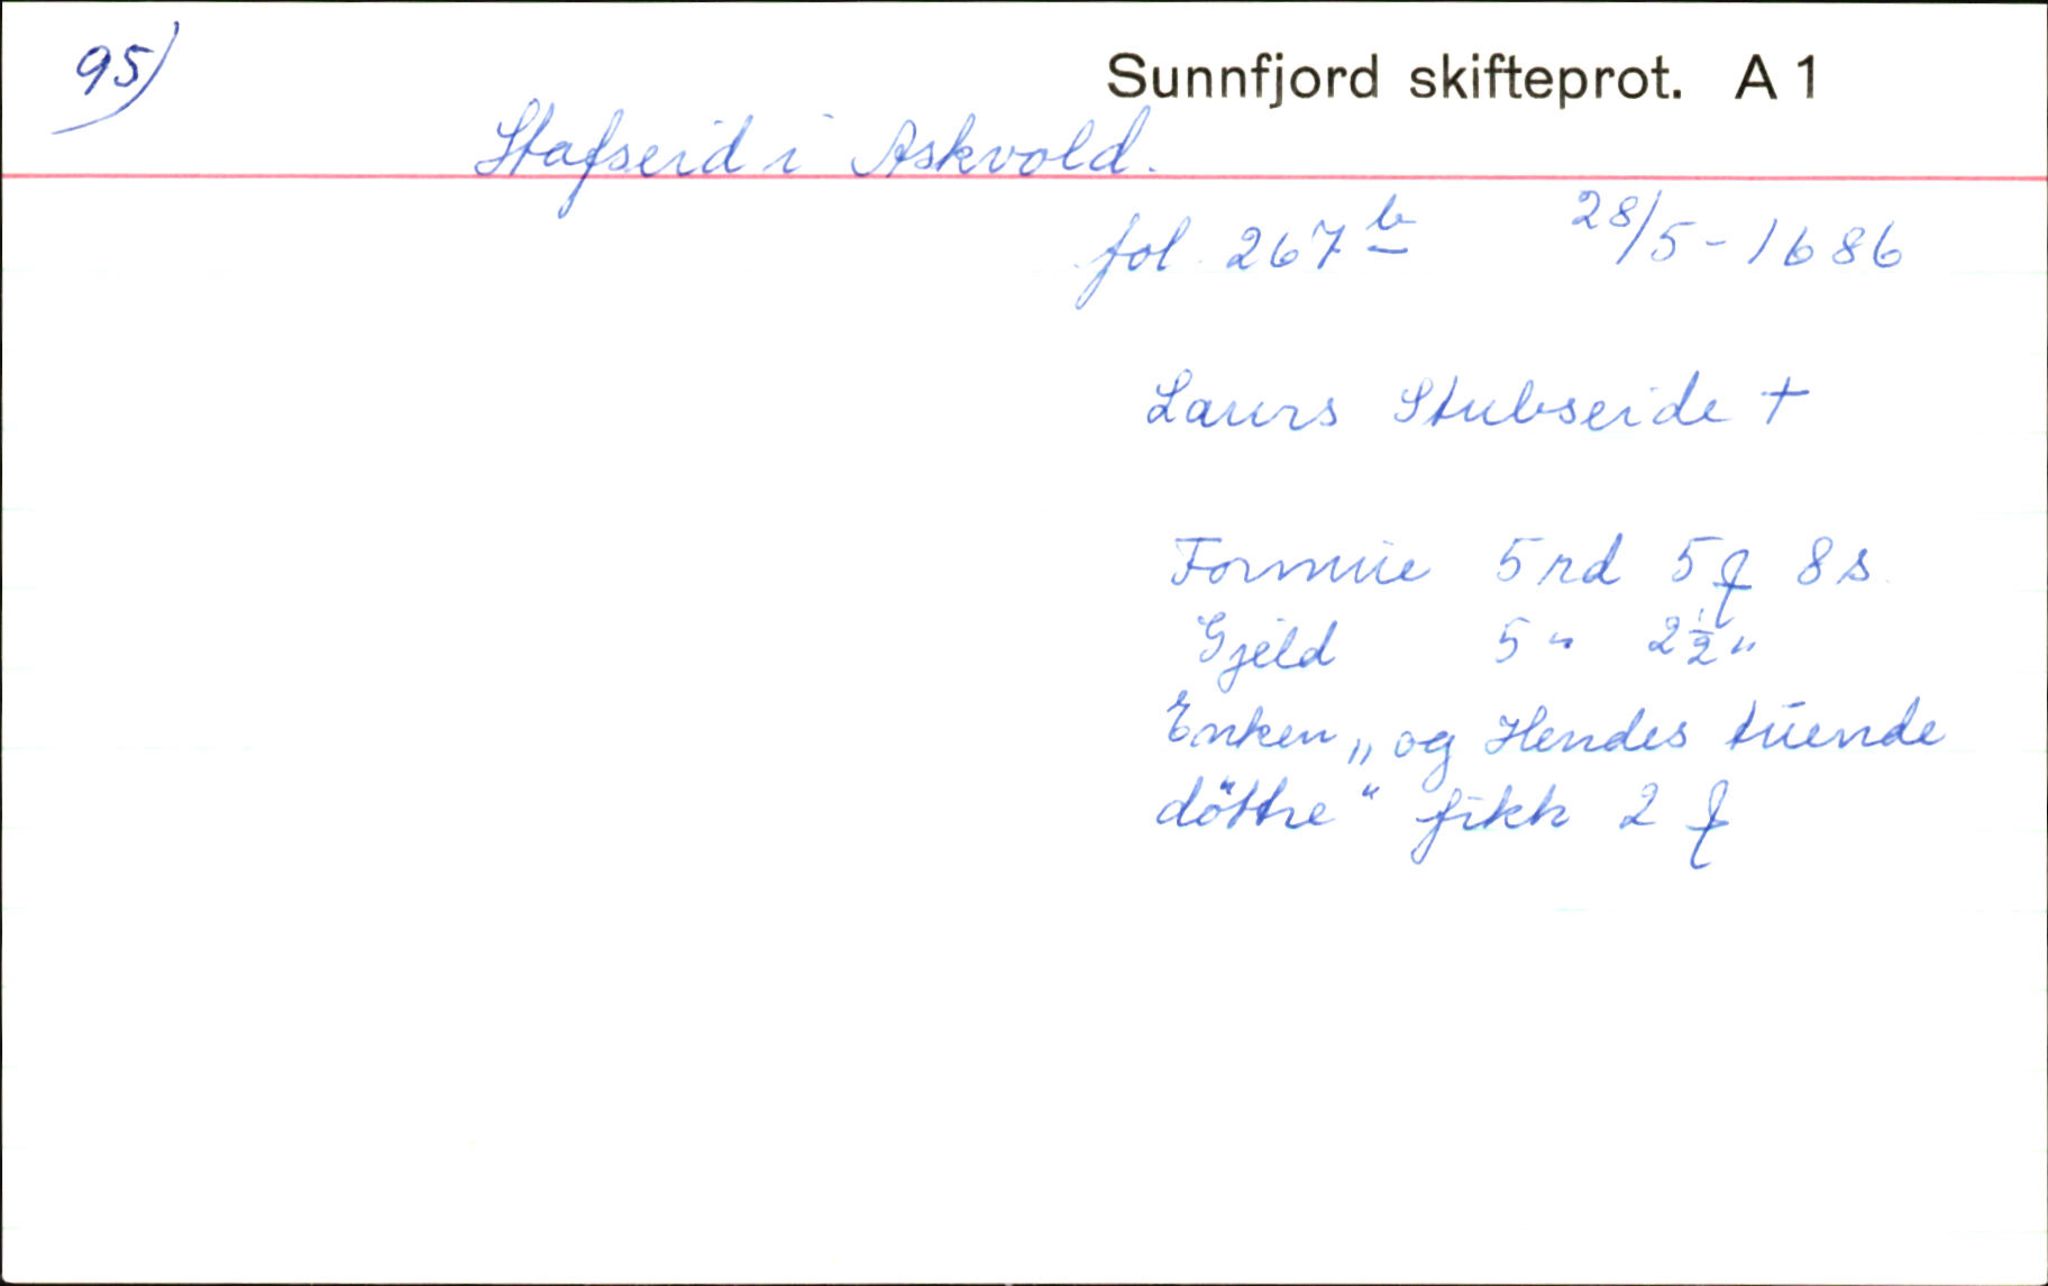 95)
Sunnfjord skifteprot. A 1
Stafseid i Askvold.
fol. 267 b 28/5 - 1686
Laurs Stubseide +
Formue 5 rd 5 ƒ 8 s.
Gjeld 5 " 2½ "
Enken „og Hendes tuende
döttre" fikk 2 ƒ